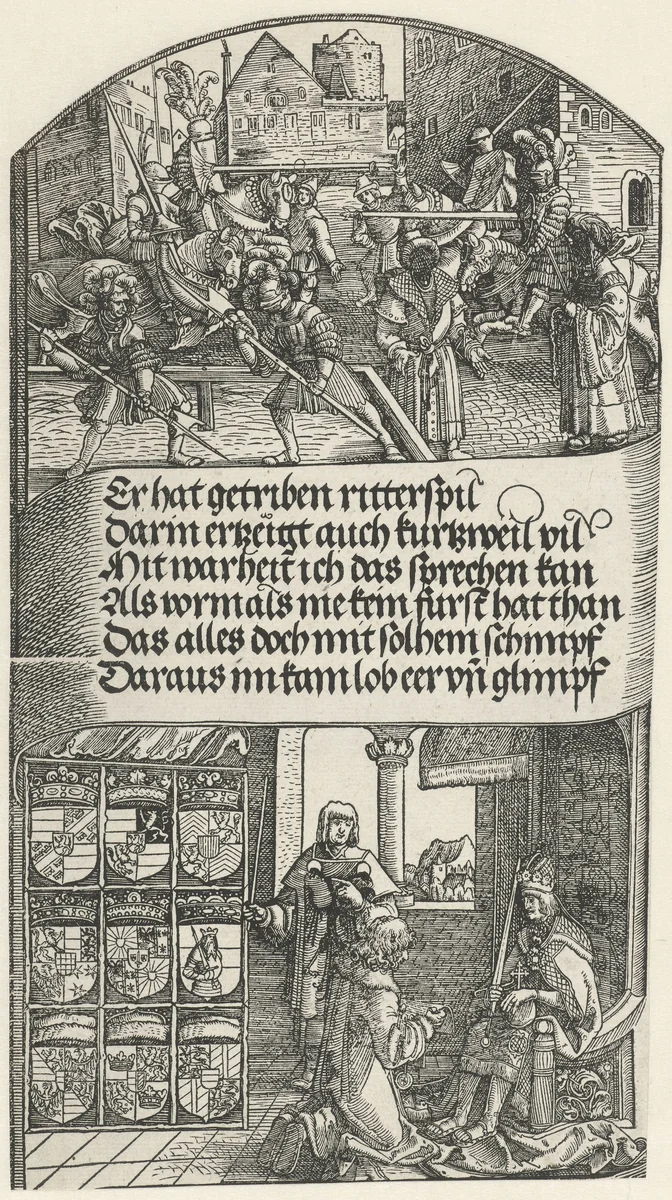 Er hat getriben ritterspil
Darin ertzeigt auch kurtzweil vil
Mit warheit ich das sprechen kan
Als vormals nie kein fürst hat than
Das alles doch mit solhem schimpf
Daraus im kam lob eer vn̄ glimpf